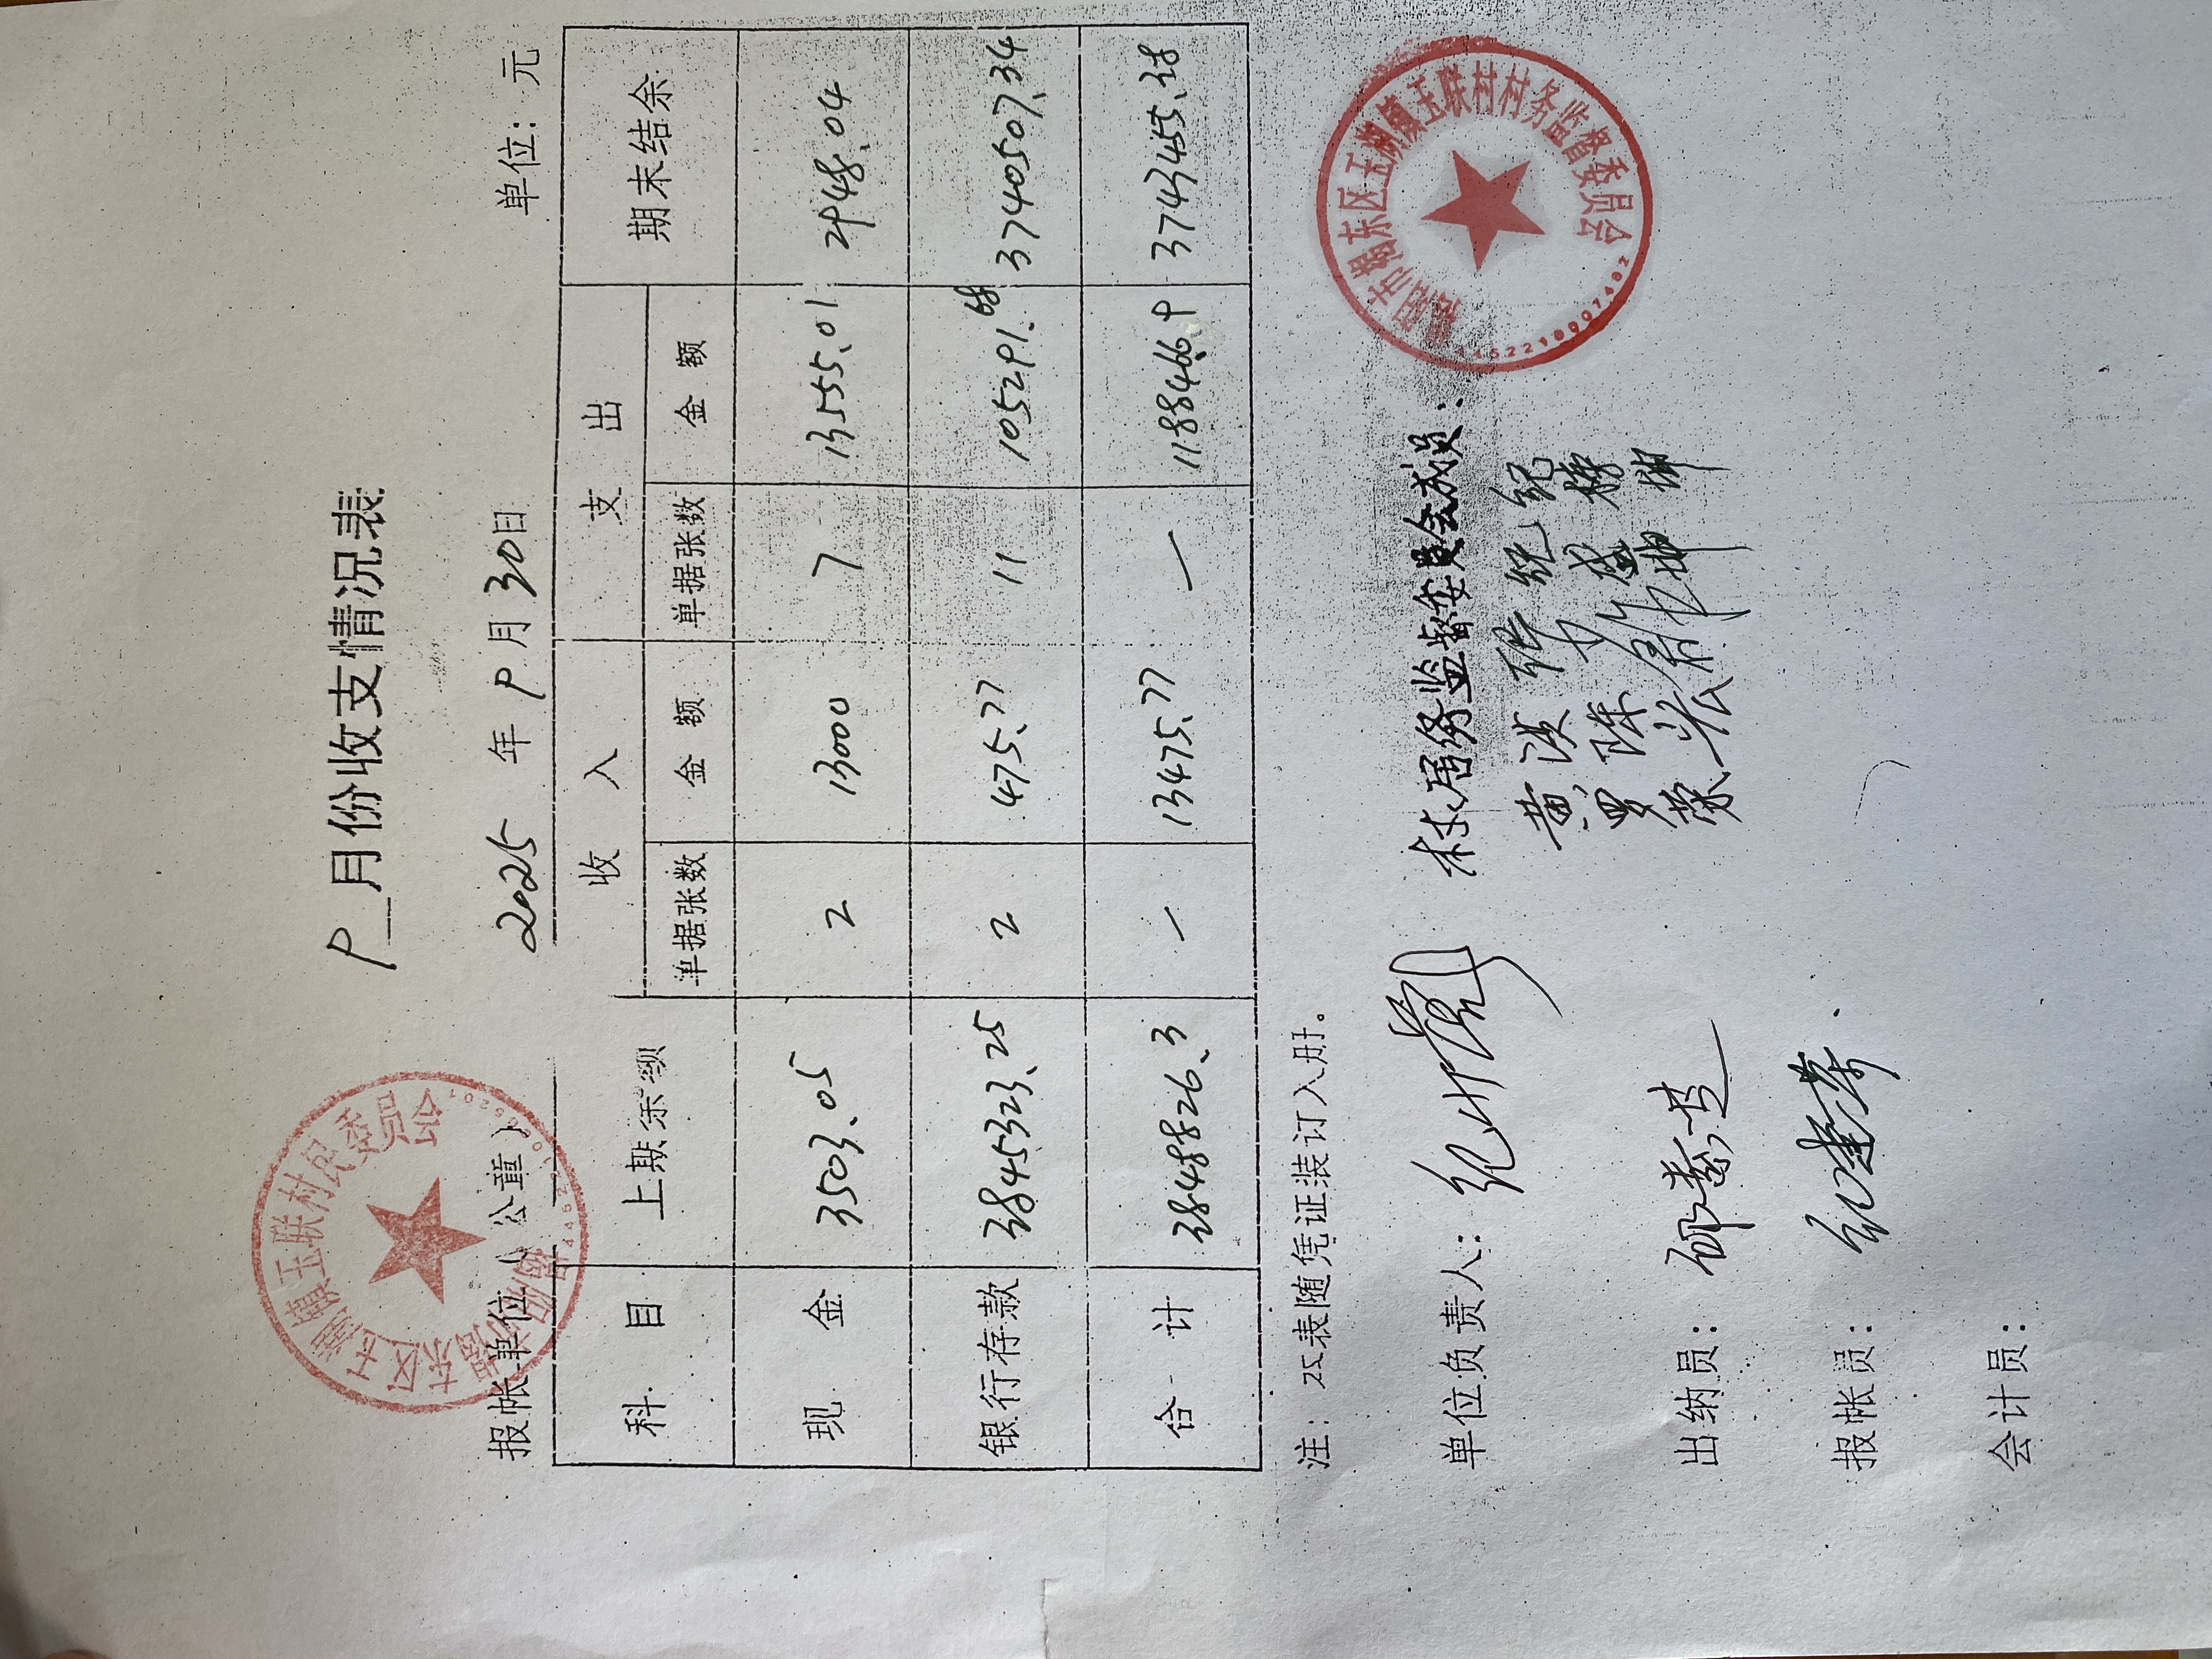 9 月份收支情况表
2025 年 9 月 30日
报帐单位(公章) 单位:元
揭阳市揭东区玉湖镇玉联村村民委员会
科 目 上期余额 收 入 支 出 期末结余
单据张数 金 额 单据张数 金 额
现 金 3503.05 2 13000 7 13555.01 2948.04
银行存款 3845323.25 2 475.77 11 105291.68 3740507.34
合 计 3848826.3 — 13475.77 — 118846.69 3743455.38
注:此表随凭证装订入册。
单位负责人: 村居务监督委员会成员:
出纳员:
报帐员:
会计员:
揭阳市揭东区玉湖镇玉联村村务监督委员会
4452210007402